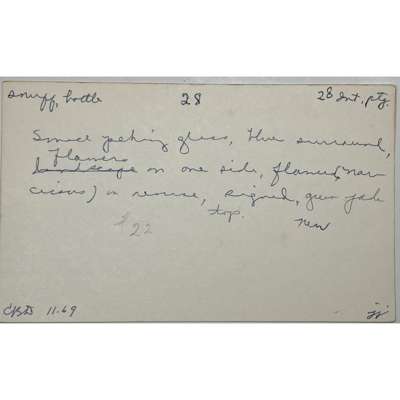 snuff, bottle 28 28 Int. ptg.
Small peking glass, blue surround,
Flowers
landscape on one side, flowers (nar-
cissus) on reverse, signed, green jade
top. new
$22
11.69
jj